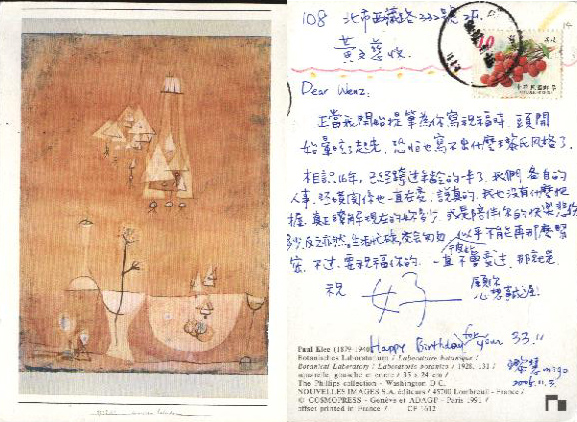 108 北市西藏路332號2F.
黃文 收.
Dear Wenz:
正當我開始提筆為你寫祝福時, 頭開
始暈眩了起來, 恐怕也寫不出什麼 氏風格了.
相識16年, 已經跨過年齡的一半了, 我們各自的
人事、環境關係也一直在變, 說真的, 我也沒有什麼把
握, 真正瞭解現在的妳多少, 或是陪伴你的快樂悲傷
多少, 反之亦然. 似乎不能再那麼緊
密. 不過, 要祝福你的 彼此 一直不曾變過, 那就是
祝 好
願你
心想事成喔!
Happy Birthday for your 33.
2005.11.3.
migo
Paul Klee (1879-1940)
Botanisches Laboratorium / Laboratoire botanique /
Botanical Laboratory / Laboratorio botanico / 1928, 131 /
aquarelle, gouache et encre / 35 x 24 cm /
The Phillips collection - Washington D.C.
NOUVELLES IMAGES S.A. éditeurs / 45700 Lombreuil - France /
© COSMOPRESS - Genève et ADAGP - Paris 1991 /
offset printed in France / CF 1612